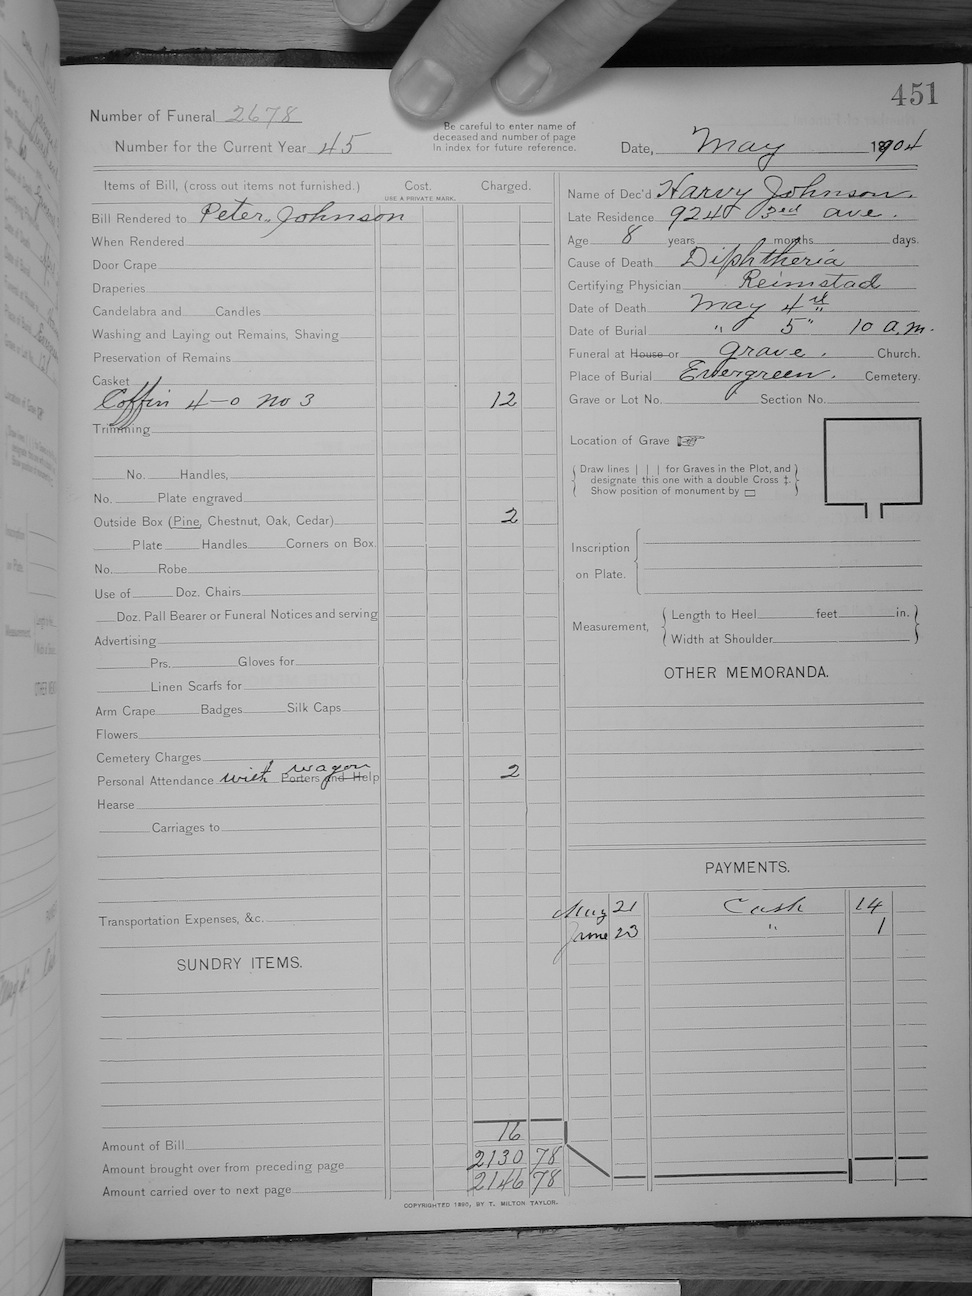 451
Number of Funeral 2678
Number for the Current Year 45
Be careful to enter name of
deceased and number of page
in index for future reference.
Date, May 1904
Items of Bill, (cross out items not furnished.) Cost. Charged.
USE A PRIVATE MARK.
Bill Rendered to Peter Johnson
When Rendered
Door Crape
Draperies
Candelabra and Candles
Washing and Laying out Remains, Shaving
Preservation of Remains
Casket
Coffin 4-0 No 3 12
Trimming
No. Handles,
No. Plate engraved
Outside Box (Pine, Chestnut, Oak, Cedar) 2
Plate Handles Corners on Box.
No. Robe
Use of Doz. Chairs
Doz. Pall Bearer or Funeral Notices and serving
Advertising
Prs. Gloves for
Linen Scarfs for
Arm Crape Badges Silk Caps
Flowers
Cemetery Charges
Personal Attendance with wagon Porters and Help 2
Hearse
Carriages to
Transportation Expenses, &c.
SUNDRY ITEMS.
Amount of Bill 16
Amount brought over from preceding page 2130 78
Amount carried over to next page 2146 78
Name of Dec'd Harvy Johnson.
Late Residence 924 3rd ave.
Age 8 years months days.
Cause of Death Diphtheria
Certifying Physician Reimstad
Date of Death May 4th
Date of Burial " 5" 10 a.m.
Funeral at House or grave. Church.
Place of Burial Evergreen. Cemetery.
Grave or Lot No. Section No.
Location of Grave
Draw lines | | | for Graves in the Plot, and
designate this one with a double Cross ‡.
Show position of monument by ▭
Inscription
on Plate.
Measurement,
Length to Heel feet in.
Width at Shoulder
OTHER MEMORANDA.
PAYMENTS.
May 21 Cash 14
June 23 " 1
COPYRIGHTED 1890, BY T. MILTON TAYLOR.